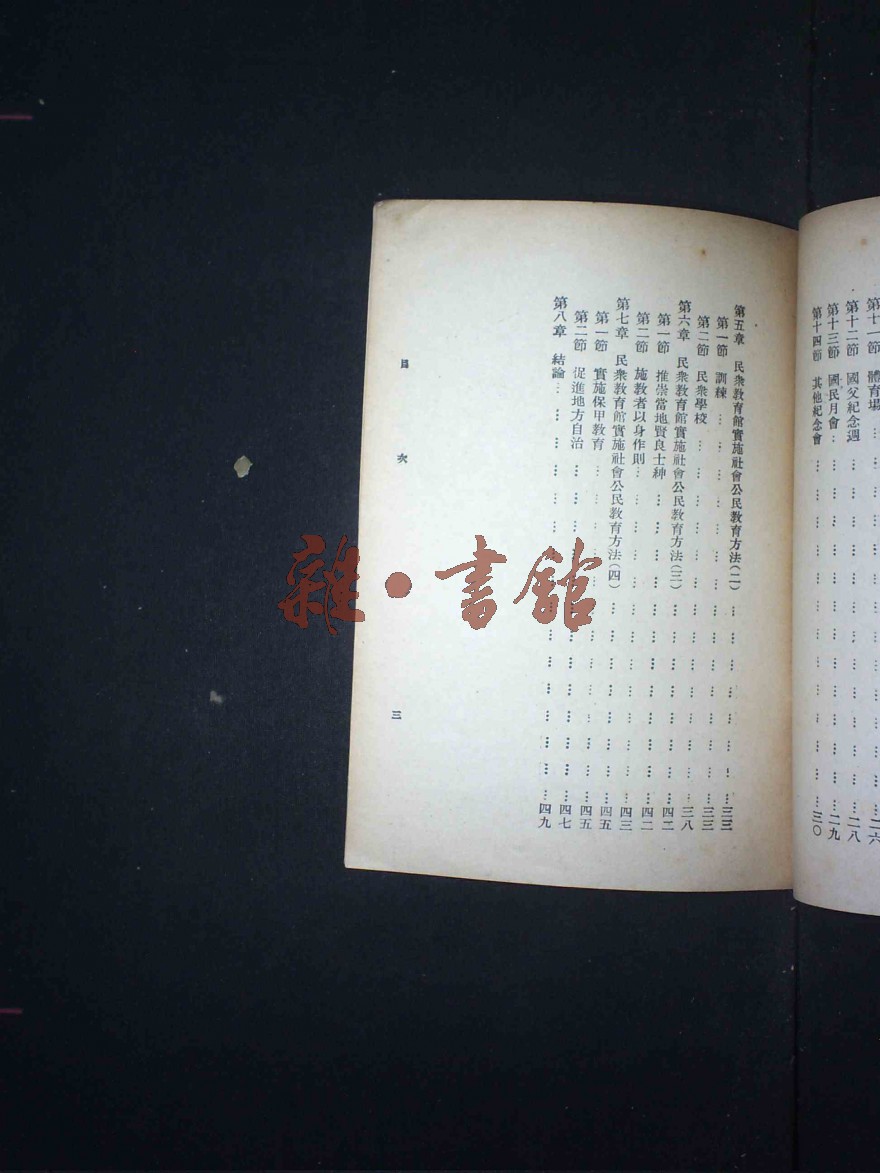 第十一節 體育場……二六
第十二節 國父紀念週……二八
第十三節 國民月會……二九
第十四節 其他紀念會……三〇
第五章 民衆教育館實施社會公民教育方法(二)……三三
第一節 訓練……三三
第二節 民衆學校……三八
第六章 民衆教育館實施社會公民教育方法(三)……四二
第一節 推崇當地賢良士紳……四二
第二節 施教者以身作則……四三
第七章 民衆教育館實施社會公民教育方法(四)……四五
第一節 實施保甲教育……四五
第二節 促進地方自治……四七
第八章 結論……四九
目次 三
雜·書館